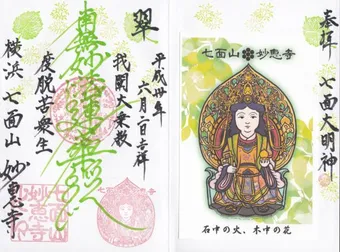 奉拝
七面大明神
七面山 妙恵寺
石中の火、木中の花
翠
平成卅年
六月二日吉祥
我闡大乗教
度脱苦衆生
南無妙法蓮華経
横浜 七面山 妙恵寺
七面山
妙恵寺